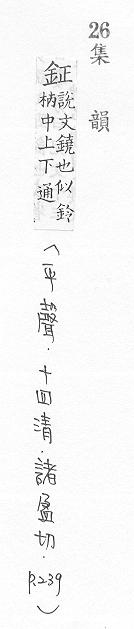 26
集韻
鉦說文鐃也似鈴
柄中上下通
（平聲．十四清．諸盈切．p.239）